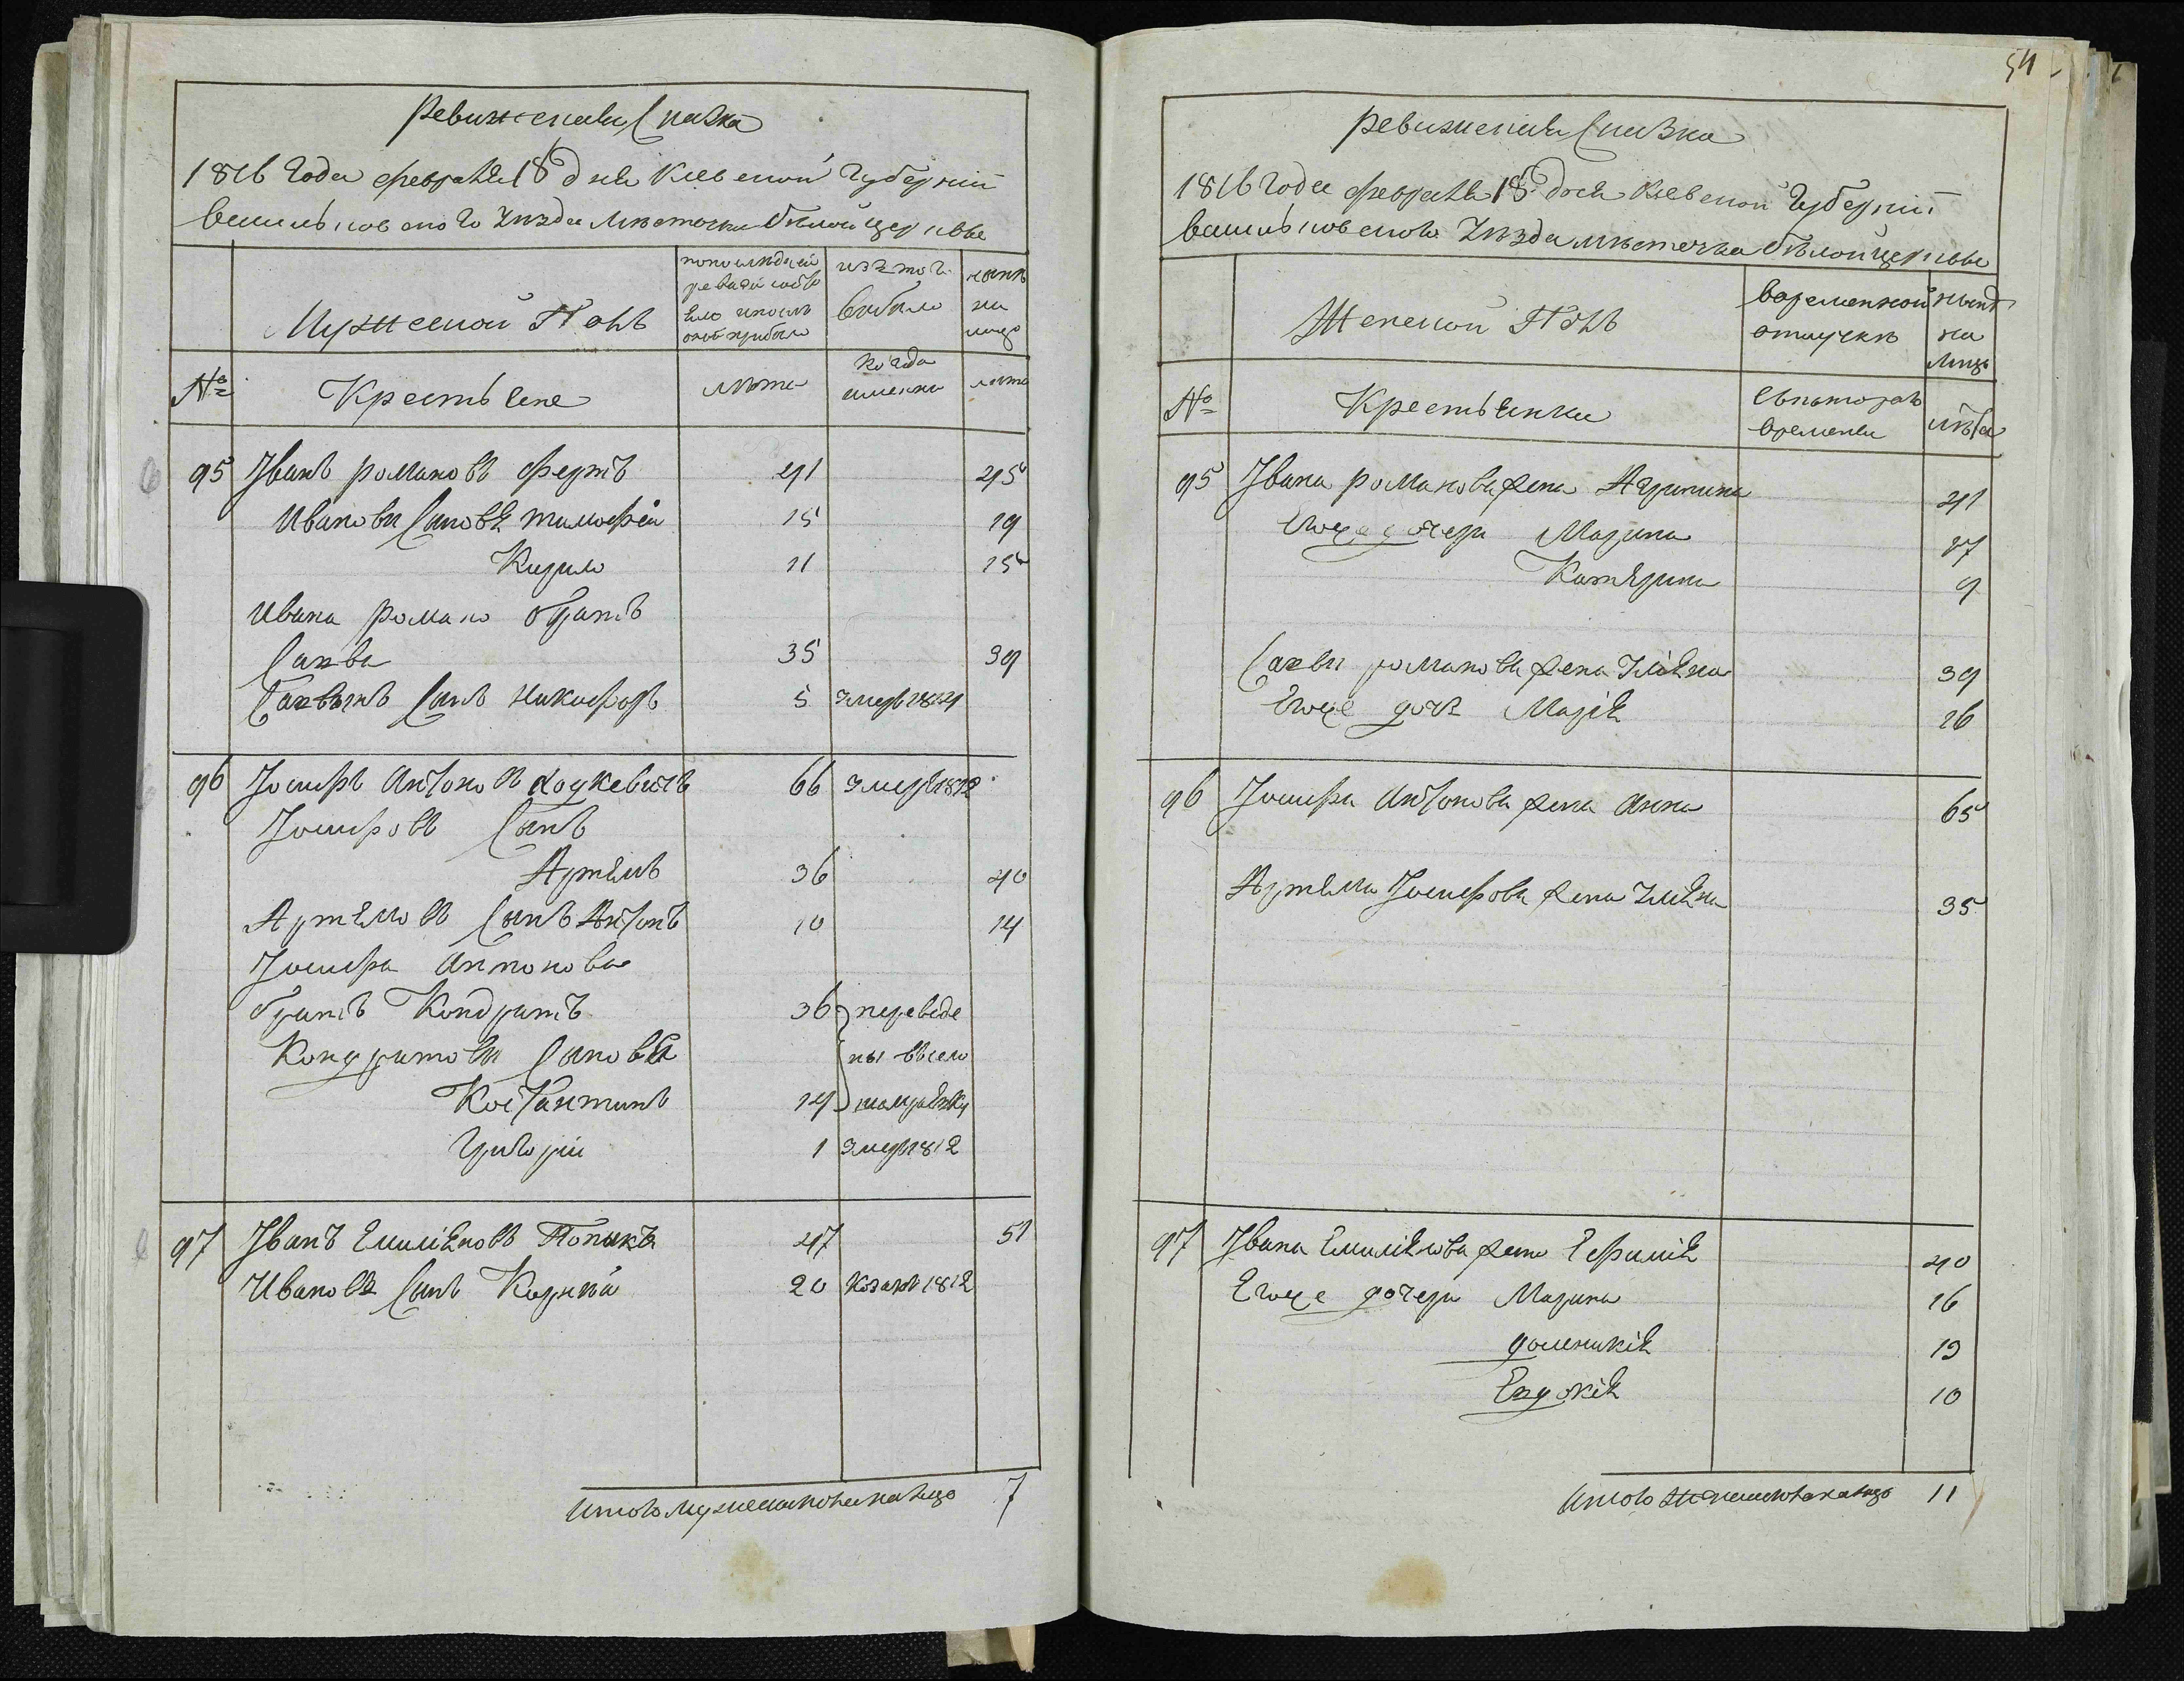 Ревижская Сказка
1816 года февраля 18 дня Киевской Губернии
васильковского уезда местечка белой церквы
Мужеской Полъ
попоследней
ревизии состо
яло и после
оной прибыло
изъ того
выбыло
ныне
на
лицо
№
Крестьяне
лета
когда
именно
лета
95 Іванъ романовъ Фертъ 41 45
Иванови Сыновя тимофей 15 19
Кирило 11 15
Ивана романо братъ
Савва 35 39
Саввинъ Сынъ никифоръ 5 умеръ 1814
96 Іосифъ Антоновъ Ходкевичъ 66 умеръ 1812
Іосифовъ Сынъ
Артемъ 36 40
Артемовъ Сынъ Антонъ 10 14
Іосифа Антонова
братъ Кондратъ 36 переведе
Кондратови Сыновя ны въсело
Костантинъ 14
Григорій 1 умеръ 1812
97 Іванъ Емиліяновъ 47 51
Ивановъ Сынъ Корнѣй 20 козакъ 1812
Итого мужеска пола налицо 7
54
Ревижская Сказка
1816 года февраля 18 дня Киевской Губернии
васильковского уезда местечка белой церквы
Женской Полъ
вовременной
отлучке
ныне
на
лицо
№
Крестьянки
Скотораго
времени
лета
95 Івана романова жена Агрипина 41
Егоже дочери Марина 17
Катерина 9
Саввы романова жена Уліяна 39
Егоже дочь Марія 16
96 Іосифа Антонова жена Анна 65
Артема Іосифова жена Уліяна 35
97 Івана Емиліянова жена Ефимія 40
Егоже дочери Марина 16
домникія 13
Евдокія 10
Итого женска пола налицо 11